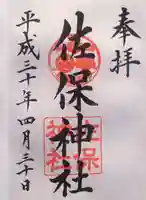 奉拝
佐保神社
平成三十年四月三十日